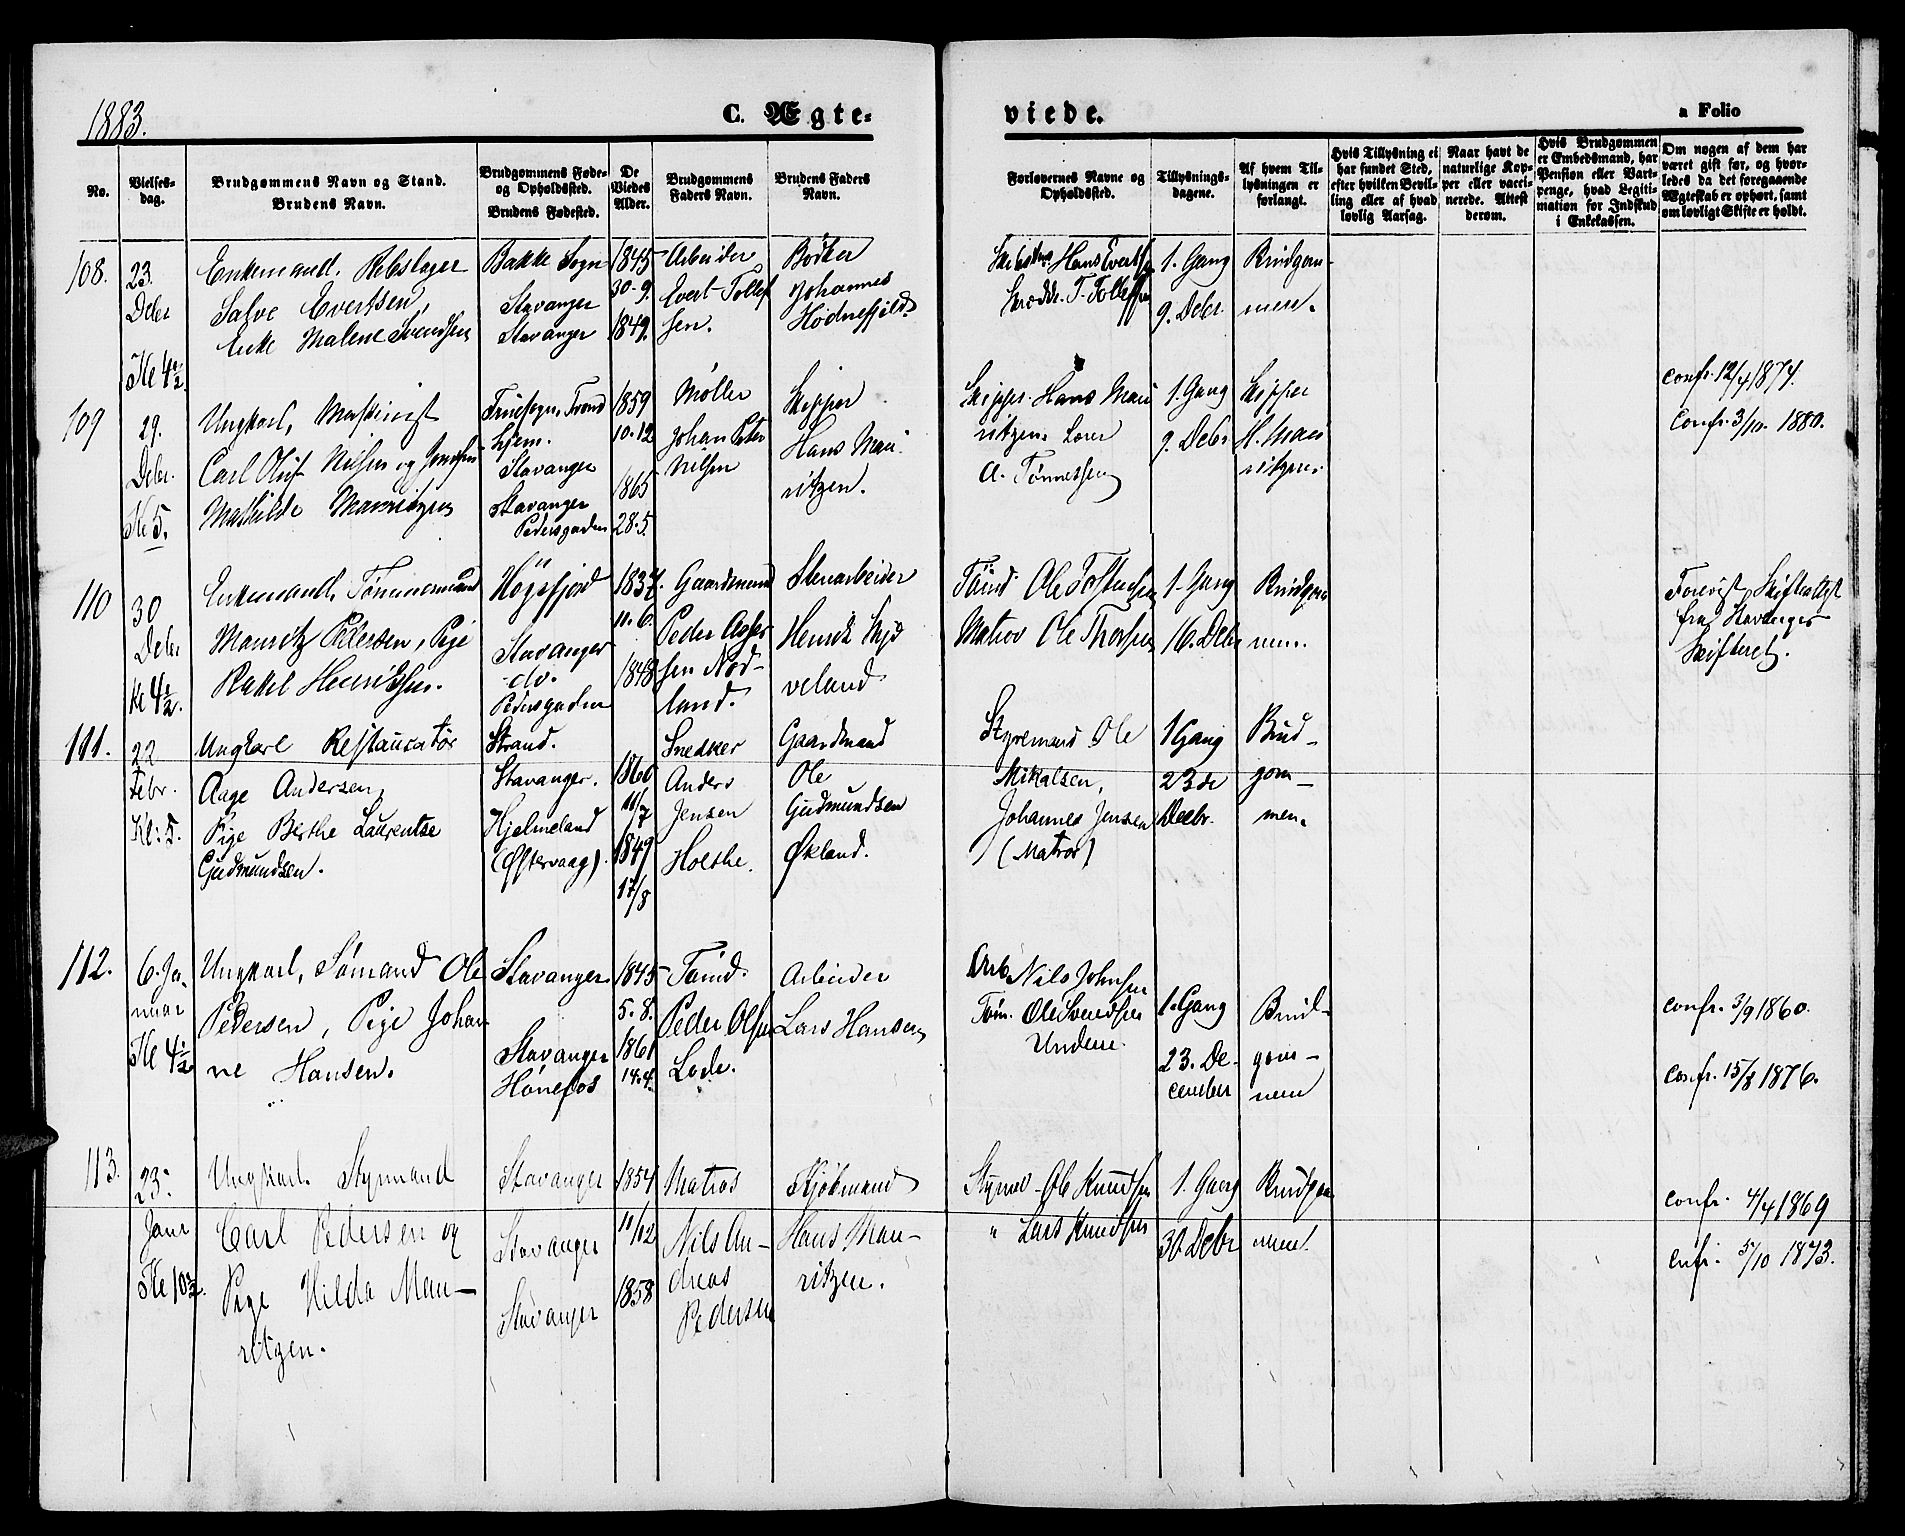 1883.
C. Ægte-
viede.
a Folio
No.
Vielses-
dag.
Brudgommens Navn og Stand.
Brudens Navn.
Brudgommens Føde-
og Opholdssted.
Brudens Fødested.
De
Viedes
Alder.
Brudgommens
Faders Navn.
Brudens Faders
Navn.
Forlovernes Navne og
Opholdssted.
Tillysnings-
dagene.
Af hvem Til-
lysningen er
forlangt.
Hvis Tillysning ei
har fundet Sted,
efter hvilken Bevil-
ling eller af hvad
lovlig Aarsag.
Naar havt de
naturlige Kop-
per eller vacci-
nerede. Attest
derom.
Hvis Brudgommen
er Embedsmand, har
Pension eller Vart-
penge, hvad Legiti-
mation for Indskud
i Enkekassen.
Om nogen af dem har
været gift før, og hvor-
ledes da det foregaaende
Ægteskab er ophørt, samt
om lovligt Skifte er holdt.
108.
23.
Debr
Kl 4½
Enkemand. Rebslager
Salve Evertsen,
Enke Malene Svendsen
Bakke Sogn
Stavanger
Stavanger
1845
30-9.
1849.
Arbeider
Evert Tollef
sen.
Bødker
Johannes
Hodnefjeld
Hans Evertsen
T. Tollefsen
1. Gang
9. Debr.
Brudgom-
men.
109
29.
Debr.
Kl 5.
Ungkarl, Maskinist
Carl Oluf Nilsen og
Mathilde Mauritzen
Fruesogn, Trond
hjem.
Stavanger
Stavanger
Pedersgaden
1859
10.12
1865
28.5.
Møller
Johan Peter
Nilsen
Skipper
Hans Mau-
ritzen.
Skipper Hans Mau
ritzen.
A. Tønnessen
1. Gang
9. Debr
Skipper
H. Mau
ritzen.
confr. 12/4 1874.
Confr. 3/10. 1880.
110
30
Debr
Kl 4½.
Enkemand, Tømmermand
Mauritz Pedersen, Pige
Rakel Henriksen.
Høgsfjord
Stavanger
do.
Pedersgaden
1837.
11.6.
1848
Gaardmand
Peder Asser
sen Nød-
land.
Stenarbeider
Henrik
veland
Tømd. Ole Tostensen
Matros Ole Thorsen
1. Gang
16. Debr
Brudgom
men.
Forevist Skifteattest
fra Stavanger
Skifteret.
111.
22
Febr.
Kl: 5.
Ungkarl Restauratør
Aage Andersen,
Pige Berthe Laurentse
Gudmundsen.
Strand.
Stavanger.
Hjelmeland
(Østervaag).
1860
11/7
1849
17/8
Snedker
Anders
Jensen
Holthe.
Gaardmand
Ole
Gudmundsen
Økland.
Styremand Ole
Mikalsen,
Johannes Jensen
(Matros)
1 Gang
23de
Decbr.
Brud-
gom-
men.
112.
6. Ja-
nuar
Kl 4½
Ungkarl, Sømand Ole
Pedersen, Pige Johan
ne Hansen.
Stavanger
Stavanger
Hønefos
1845
5.8.
1861
14.4.
Tømd.
Peder Olsen
Lode.
Arbeider
Lars Hansen
Arb. Nils Johnsen
Tøm. Ole Svendsen
Undene.
1. Gang
23. De-
cember
Brud-
gom-
men
confr. 3/9 1860.
confr. 15/8 1876.
113.
23.
Janr
Kl 10½.
Ungkarl. Styrmand
Carl Pedersen og
Pige Hilda Mau-
ritzen.
Stavanger
Stavanger
Stavanger
1854
11/12
1858
Matros
Nils An-
dreas
Pedersen
Kjøbmand
Hans Mau-
ritzen.
Styrm. Ole Knudsen
" Lars Knudsen
1. Gang
30. Debr
Brudgom
men.
confr. 4/4 1869
cnfr. 5/10 1873.